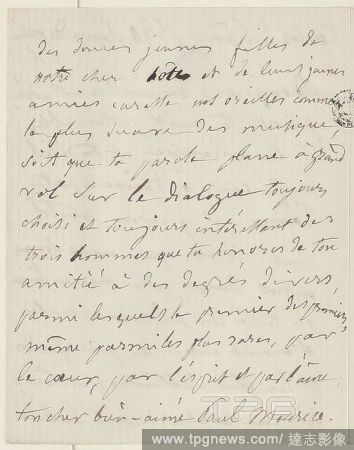 des douces jeunes filles de
notre cher hôte et de leurs jeunes
amies caresse nos oreilles comme
la plus suave des musiques
soit que ta parole plane à grand
vol sur le dialogue toujours
choisi et toujours intéressant des
trois hommes que tu honores de ton
amitié à des degrés divers,
parmi lesquels le premier des premiers,
même parmi les plus rares, par
le cœur, par l'esprit et par l'âme,
ton cher bien-aimé Paul Meurice.
TPG
www.tpgnews.com / 達志影像